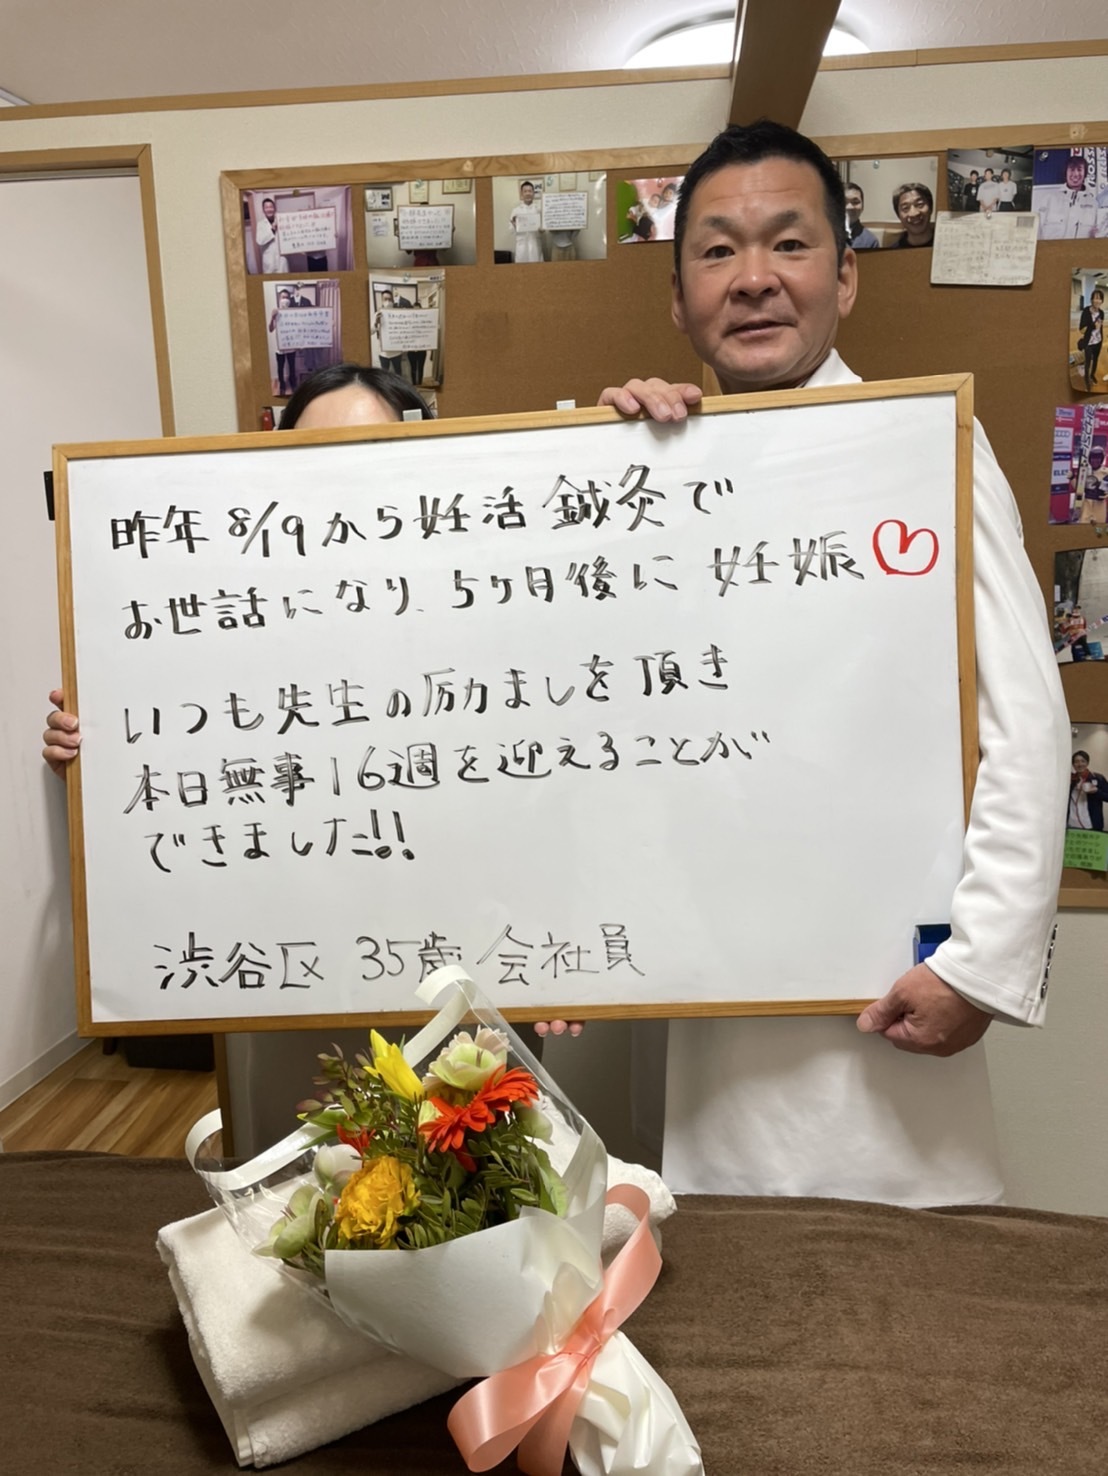 昨年 8/19から妊活 鍼灸で
お世話になり、5ヶ月後に 妊娠♡
いつも先生の励ましを頂き
本日無事16週を迎えることが
できました!!
渋谷区 35歳 会社員